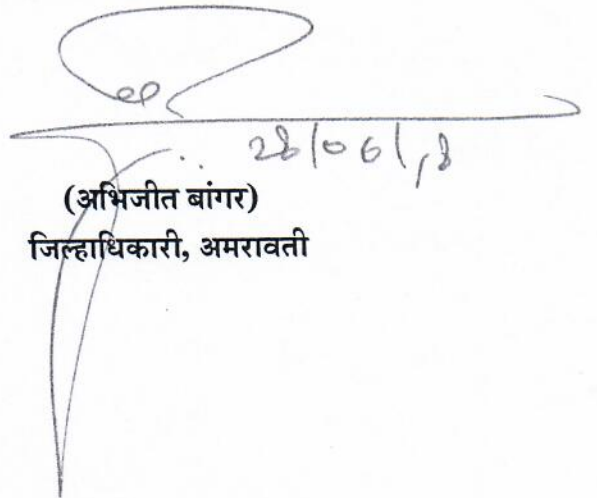 28/06/18
(अभिजीत बांगर)
जिल्हाधिकारी, अमरावती